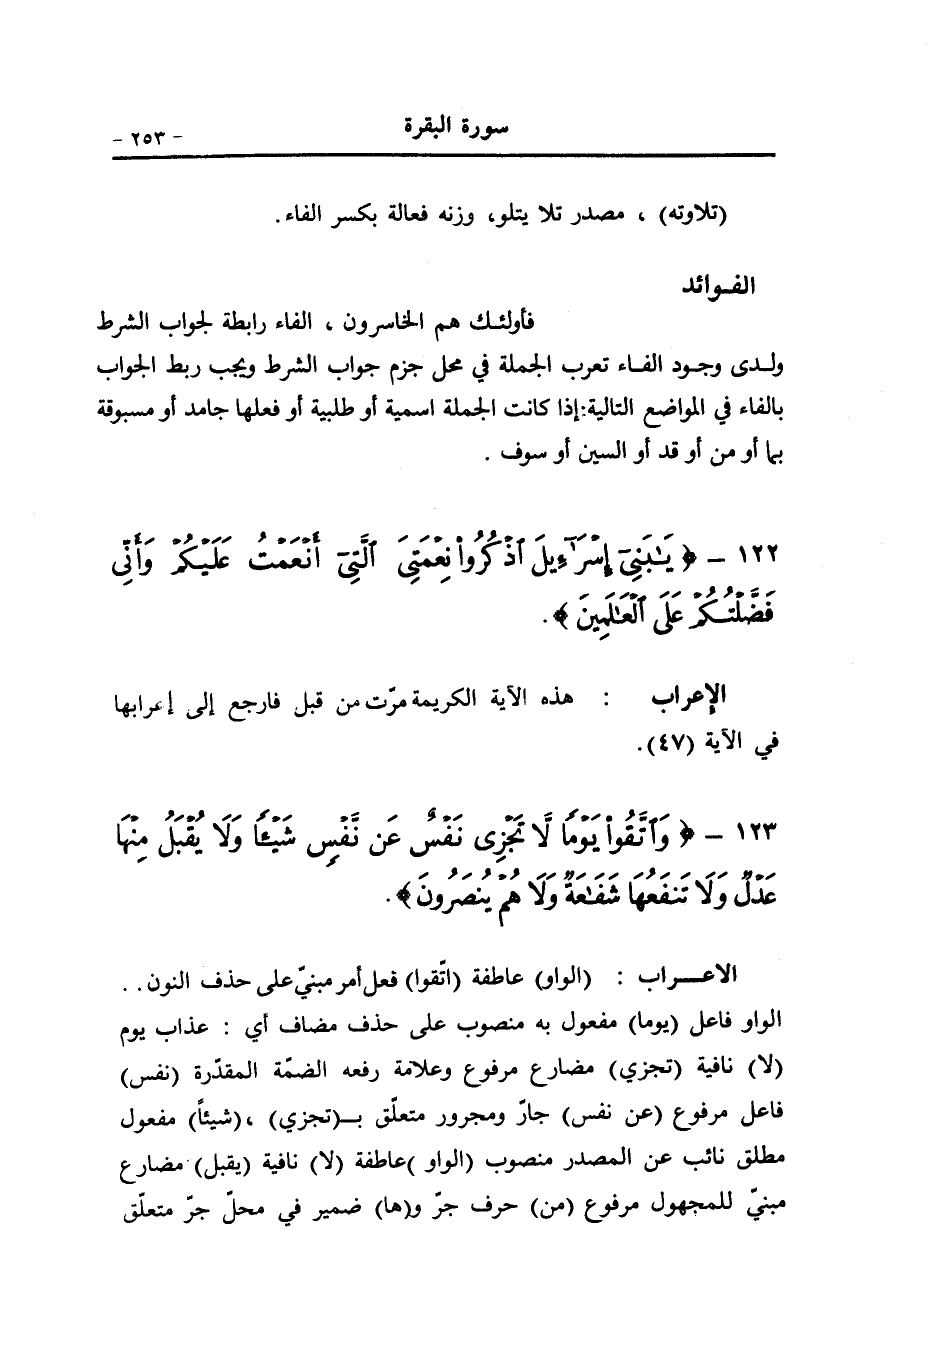 سورة البقرة
- ٢٥٣ -
(تلاوته) ، مصدر تلا يتلو، وزنه فعالة بكسر الفاء.
الفـوائد
فأولئـك هم الخاسرون ، الفاء رابطة لجواب الشرط
ولـدى وجـود الفـاء تعرب الجملة في محل جزم جواب الشرط ويجب ربط الجواب
بالفاء في المواضع التالية:إذا كانت الجملة اسمية أو طلبية أو فعلها جامد أو مسبوقة
بما أو من أو قد أو السين أو سوف .
١٢٢ - ﴿ يَـٰبَنِىٓ إِسْرَٰٓءِيلَ ٱذْكُرُوا۟ نِعْمَتِىَ ٱلَّتِىٓ أَنْعَمْتُ عَلَيْكُمْ وَأَنِّى
فَضَّلْتُكُمْ عَلَى ٱلْعَـٰلَمِينَ ﴾.
الإعراب : هذه الآية الكريمة مرّت من قبل فارجع إلى إعرابها
في الآية (٤٧).
١٢٣ - ﴿ وَٱتَّقُوا۟ يَوْمًا لَّا تَجْزِى نَفْسٌ عَن نَّفْسٍ شَيْـًٔا وَلَا يُقْبَلُ مِنْهَا
عَدْلٌ وَلَا تَنفَعُهَا شَفَـٰعَةٌ وَلَا هُمْ يُنصَرُونَ ﴾.
الاعـــراب : (الواو) عاطفة (اتّقوا) فعل أمر مبنيّ على حذف النون . .
الواو فاعل (يوما) مفعول به منصوب على حذف مضاف أي : عذاب يوم
(لا) نافية (تجزي) مضارع مرفوع وعلامة رفعه الضمّة المقدّرة (نفس)
فاعل مرفوع (عن نفس) جارّ ومجرور متعلّق بـ(تجزي) ، (شيئاً) مفعول
مطلق نائب عن المصدر منصوب (الواو )عاطفة (لا) نافية (يقبل) مضارع
مبنيّ للمجهول مرفوع (من) حرف جرّ و(ها) ضمير في محلّ جرّ متعلّق